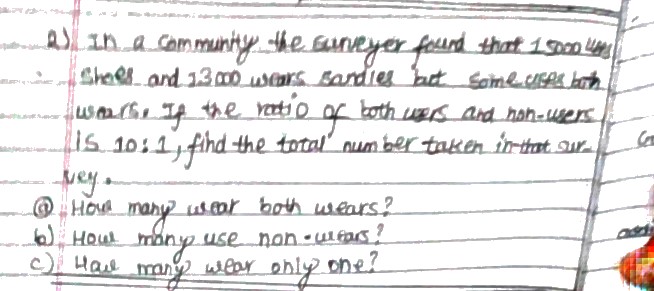 a) In a community the surveyer found that 15000 uses
shoes and 13000 wears sandles but some uses both
wears. If the ratio of both users and non-users
is 10:1, find the total number taken in that sur-
vey.
a) How many wear both wears?
b) How many use non-wears?
c) How many wear only one?